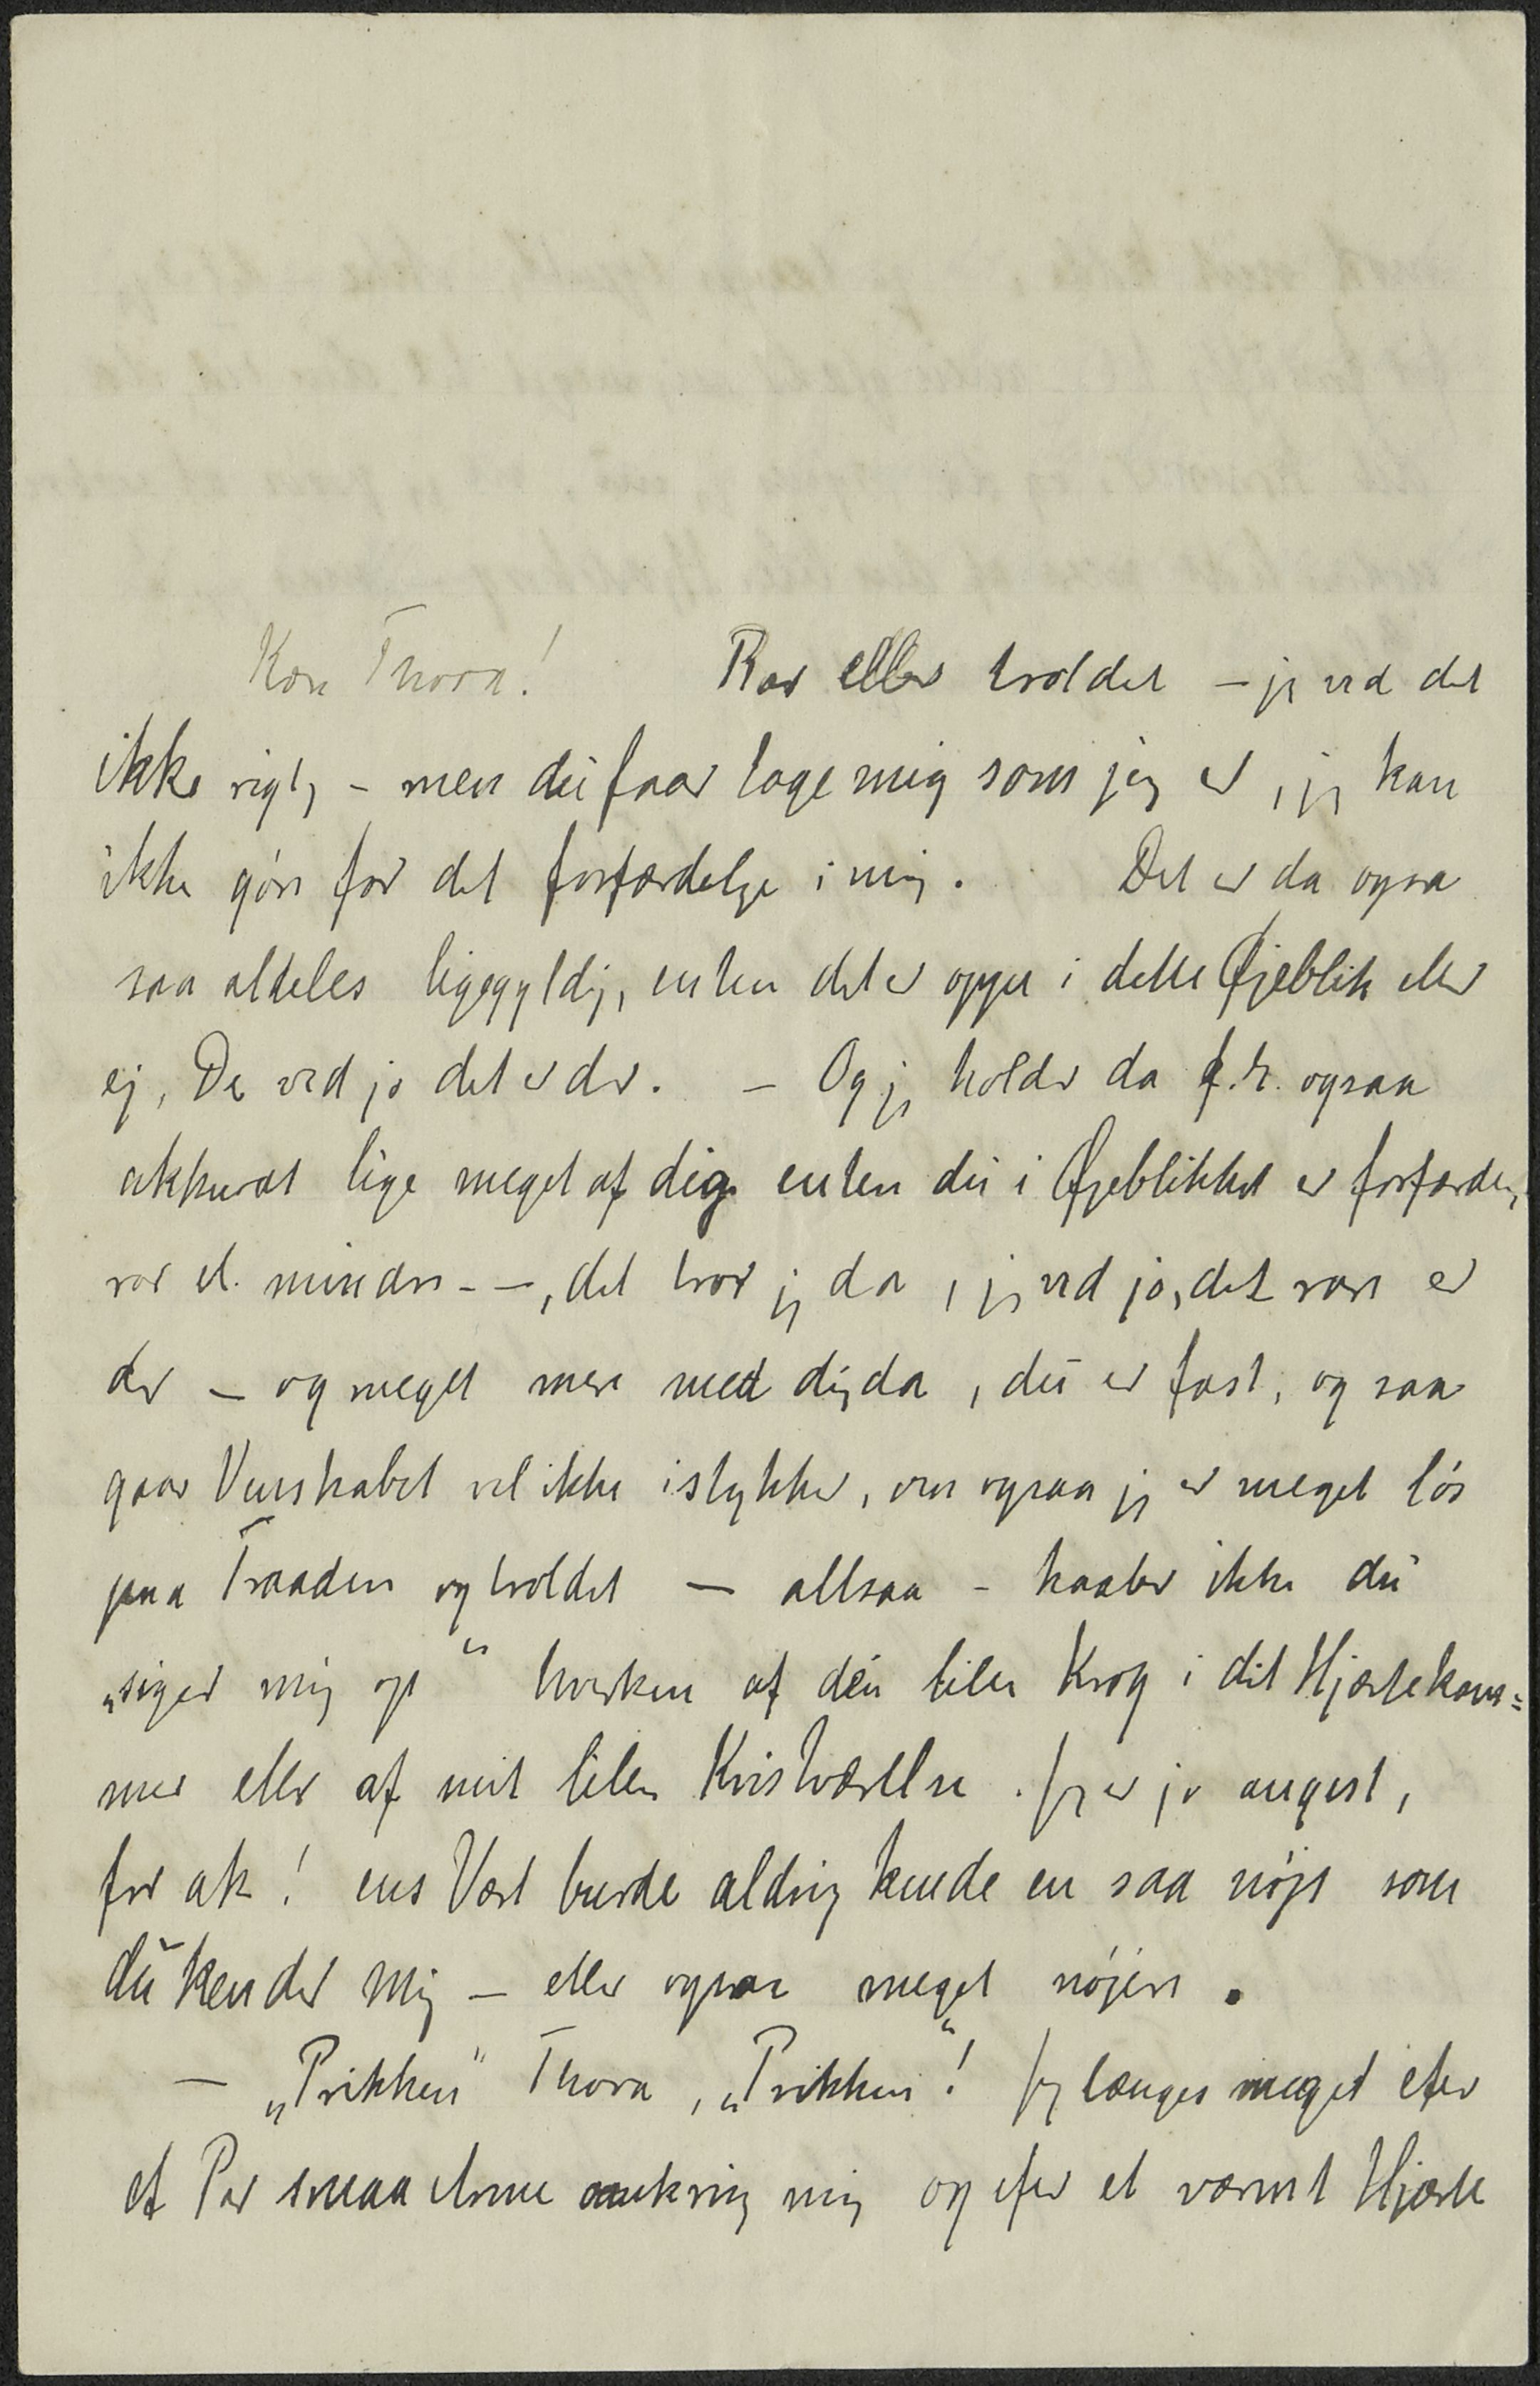 Kære Thora! Rar eller troldet – jeg ved det
ikke rigtig – men du faar tage mig som jeg er, jeg kan
ikke gøre for det forfærdelige i mig. Det er da ogsaa
saa aldeles ligegyldig, enten det er oppe i dette Øjeblik eller
ej, De ved jo det er der. – Og jeg holder da f. X. ogsaa
akkurat lige meget af dig enten du i Øjeblikket er forfærdelig
rar el. mindre – –, det tror jeg da, jeg ved jo, det rare er
der – og meget mere med dig da, du er fast, og saa
gaar Venskabet vel ikke istykker, om ogsaa jeg er meget løs
paa Traaden og troldet — altsaa – haaber ikke du
„siger mig op“ hverken af den lille Krog i dit Hjærtekam=
mer eller af mit lille Kvistværelse. Jeg er jo angest,
for ak! ens Vært burde aldrig kende en saa nøje som
du kender mig – eller ogsaa meget nøjere.
– „Prikken“ Thora, „Prikken“! Jeg længes meget efter
et Par smaa Arme omkring mig og efter et varmt Hjærte